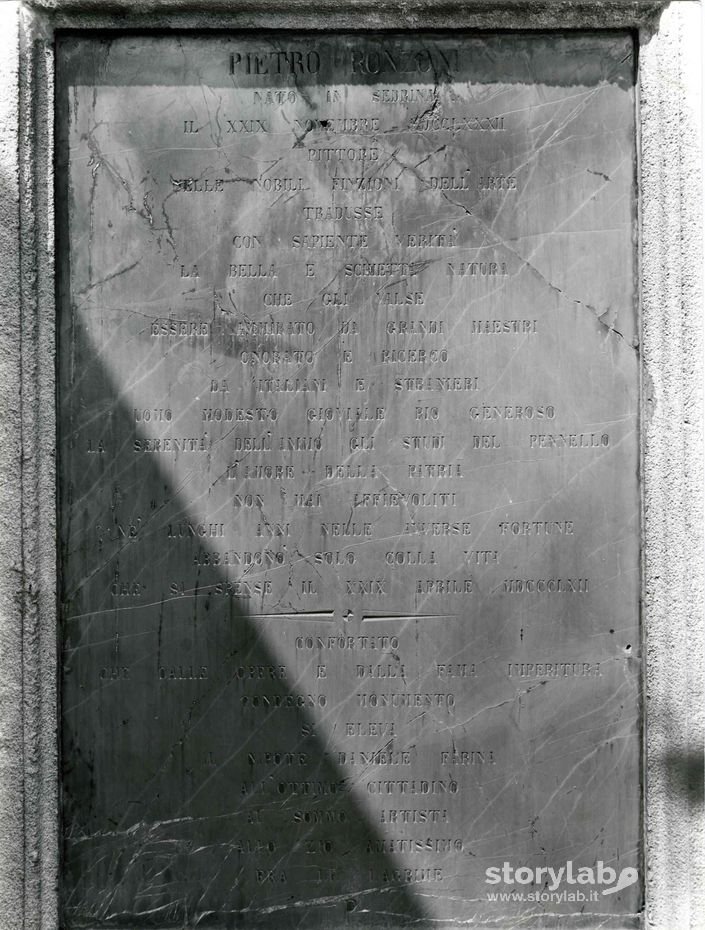 PIETRO RONZONI
NATO IN SEDRINA
IL XXIX NOVEMBRE MDCCLXXXII
PITTORE
NELLE NOBILI FINZIONI DELL'ARTE
TRADUSSE
CON SAPIENTE VERITA'
LA BELLA E SCHIETTA NATURA
CHE GLI VALSE
ESSERE AMMIRATO DA GRANDI MAESTRI
ONORATO E RICERCO
DA ITALIANI E STRANIERI
UOMO MODESTO GIOVIALE PIO GENEROSO
LA SERENITA' DELL'ANIMO GLI STUDI DEL PENNELLO
L'AMORE DELLA PATRIA
NON MAI AFFIEVOLITI
NE' LUNGHI ANNI NELLE AVVERSE FORTUNE
ABBANDONO' SOLO COLLA VITA
CHE SI SPENSE IL XXIX APRILE MDCCCLXII
CONFORTATO
CHE DALLE OPERE E DALLA FAMA IMPERITURA
CONDEGNO MONUMENTO
SI ELEVA
IL NIPOTE DANIELE FARINA
ALL'OTTIMO CITTADINO
AL SOMMO ARTISTA
ALLO ZIO AMATISSIMO
FRA LE LAGRIME
P
storylab
www.storylab.it